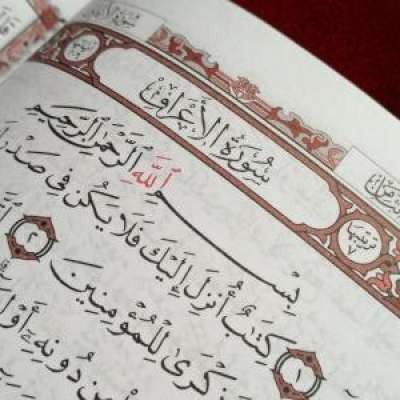 سُورَةُ الأَعْرَافِ
ترتيبها
٧
بِسْمِ ٱللَّهِ ٱلرَّحْمَٰنِ ٱلرَّحِيمِ
١ كِتَٰبٌ أُنزِلَ إِلَيْكَ فَلَا يَكُن فِى صَدْرِ
ذِكْرَىٰ لِلْمُؤْمِنِينَ ٢
مِن دُونِهِۦٓ أَوْلِ